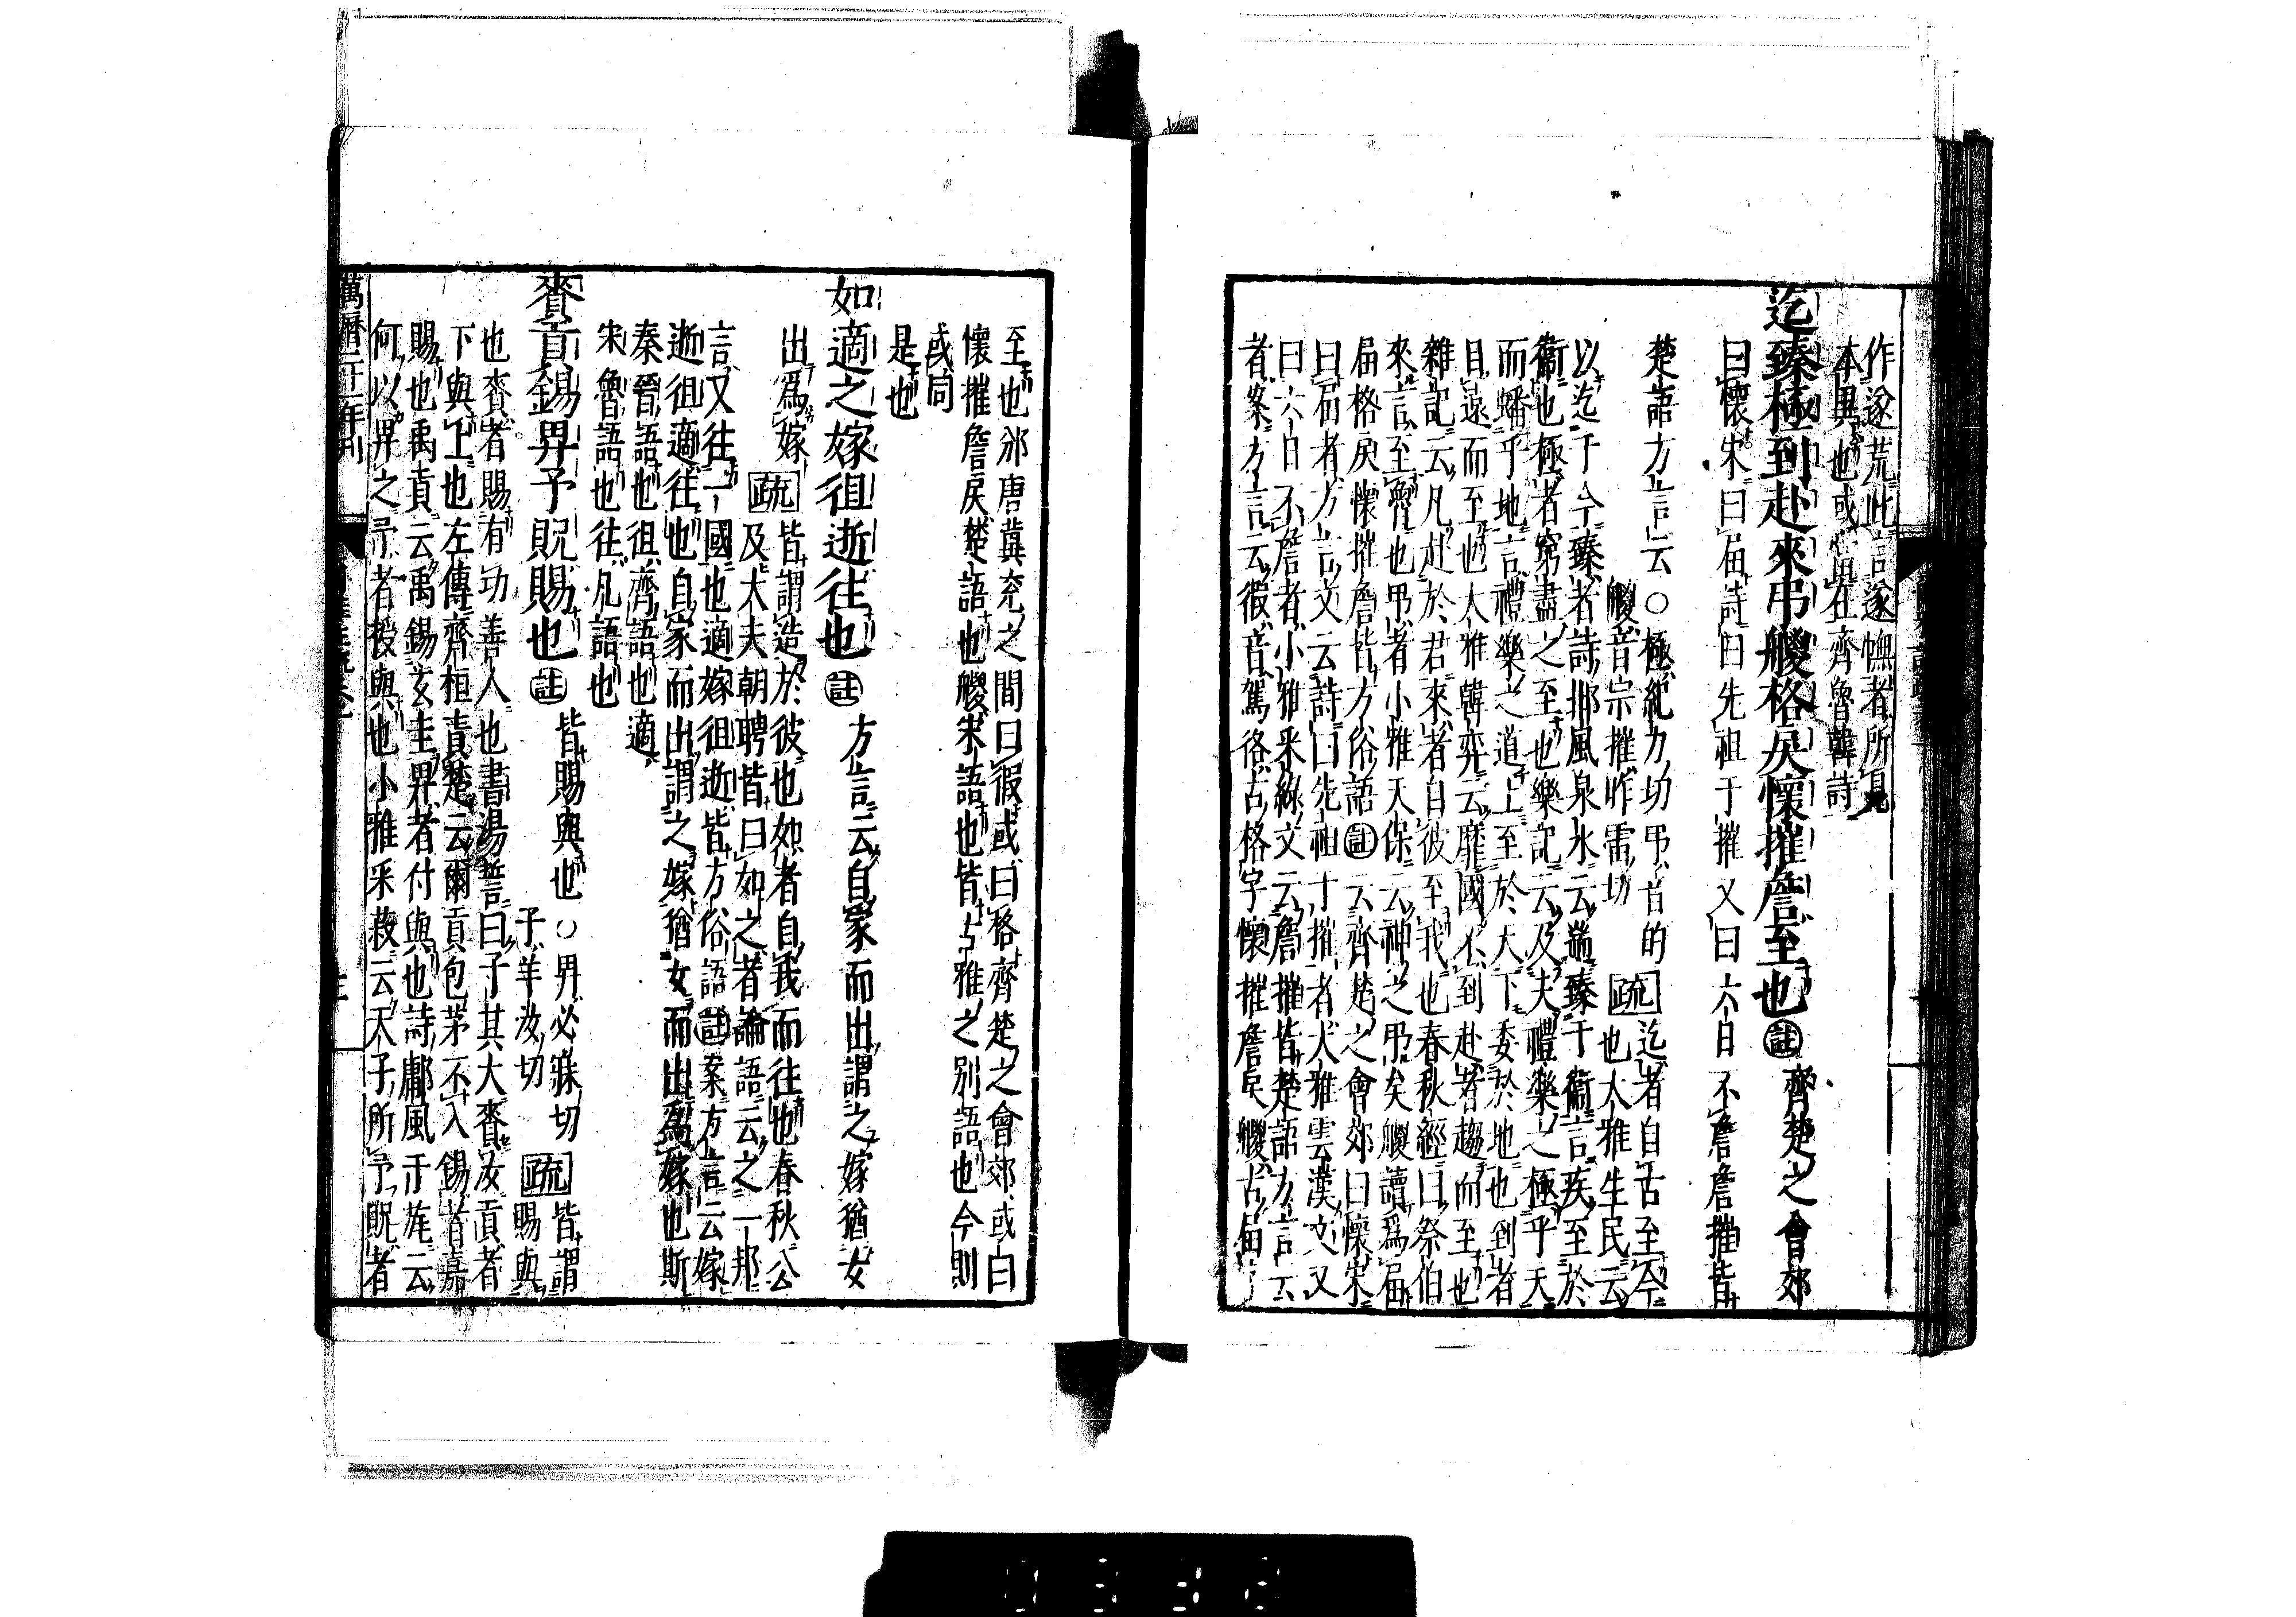 作遂荒此言遂幠者所見
本異也或當在齊魯韓詩
迄臻極到赴來弔艐格戾懷摧詹至也註齊楚之會郊
曰懷宋曰屆詩曰先祖于摧又曰六日不詹詹摧皆
楚語方言云○極紀力切弔音的
艐音宗摧昨雷切
疏迄者自古至今
也大雅生民云
以迄于今臻者詩邶風泉水云遄臻于衞言疾至於
衞也極者窮盡之至也樂記云及夫禮樂之極乎天
而蟠乎地言禮樂之道上至於天下委於地也到者
自遠而至也大雅韓弈云靡國不到赴者趨而至也
雜記云凡赴於君來者自彼至我也春秋經曰祭伯
來言至魯也弔者小雅天保云神之弔矣艐讀爲屆
屆格戾懷摧詹皆方俗語註云齊楚之會郊曰懷宋
曰屆者方言文云詩曰先祖于摧者大雅雲漢文又
曰六日不詹者小雅采綠文云詹摧皆楚語方言云
者案方言云徦音駕狢古格字懷摧詹戾艐古屆字
至也邠唐冀兖之間曰徦或曰格齊楚之會郊或曰
懷摧詹戾楚語也艐宋語也皆古雅之别語也今則
或同
是也
如適之嫁徂逝往也註方言云自家而出謂之嫁猶女
出爲嫁疏皆謂造於彼也如者自我而往也春秋公
及大夫朝聘皆曰如之者論語云之一邦
言又往一國也適嫁徂逝皆方俗語註案方言云嫁
逝徂適往也自家而出謂之嫁猶女而出爲嫁也斯
秦晉語也徂齊語也適
宋魯語也往凡語也
賚貢錫畀予貺賜也註皆賜與也○畀必寐切
予羊汝切
疏皆謂
賜與
也賚者賜有功善人也書湯誓曰予其大賚汝貢者
下與上也左傳齊桓責楚云爾貢包茅不入錫者嘉
賜也禹貢云禹錫玄圭畀者付與也詩鄘風干旄云
何以畀之予者授與也小雅采菽云天子所予貺者
萬曆二十一年刊